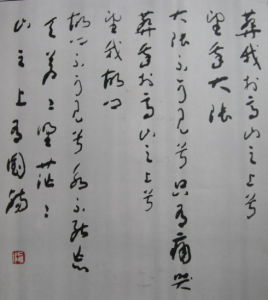 葬我於高山之上兮
望我大陸
大陸不可見兮只有痛哭
葬我於高山之上兮
望我故鄉
故鄉不可見兮永不能忘
天蒼〻野茫〻
山之上有國殤